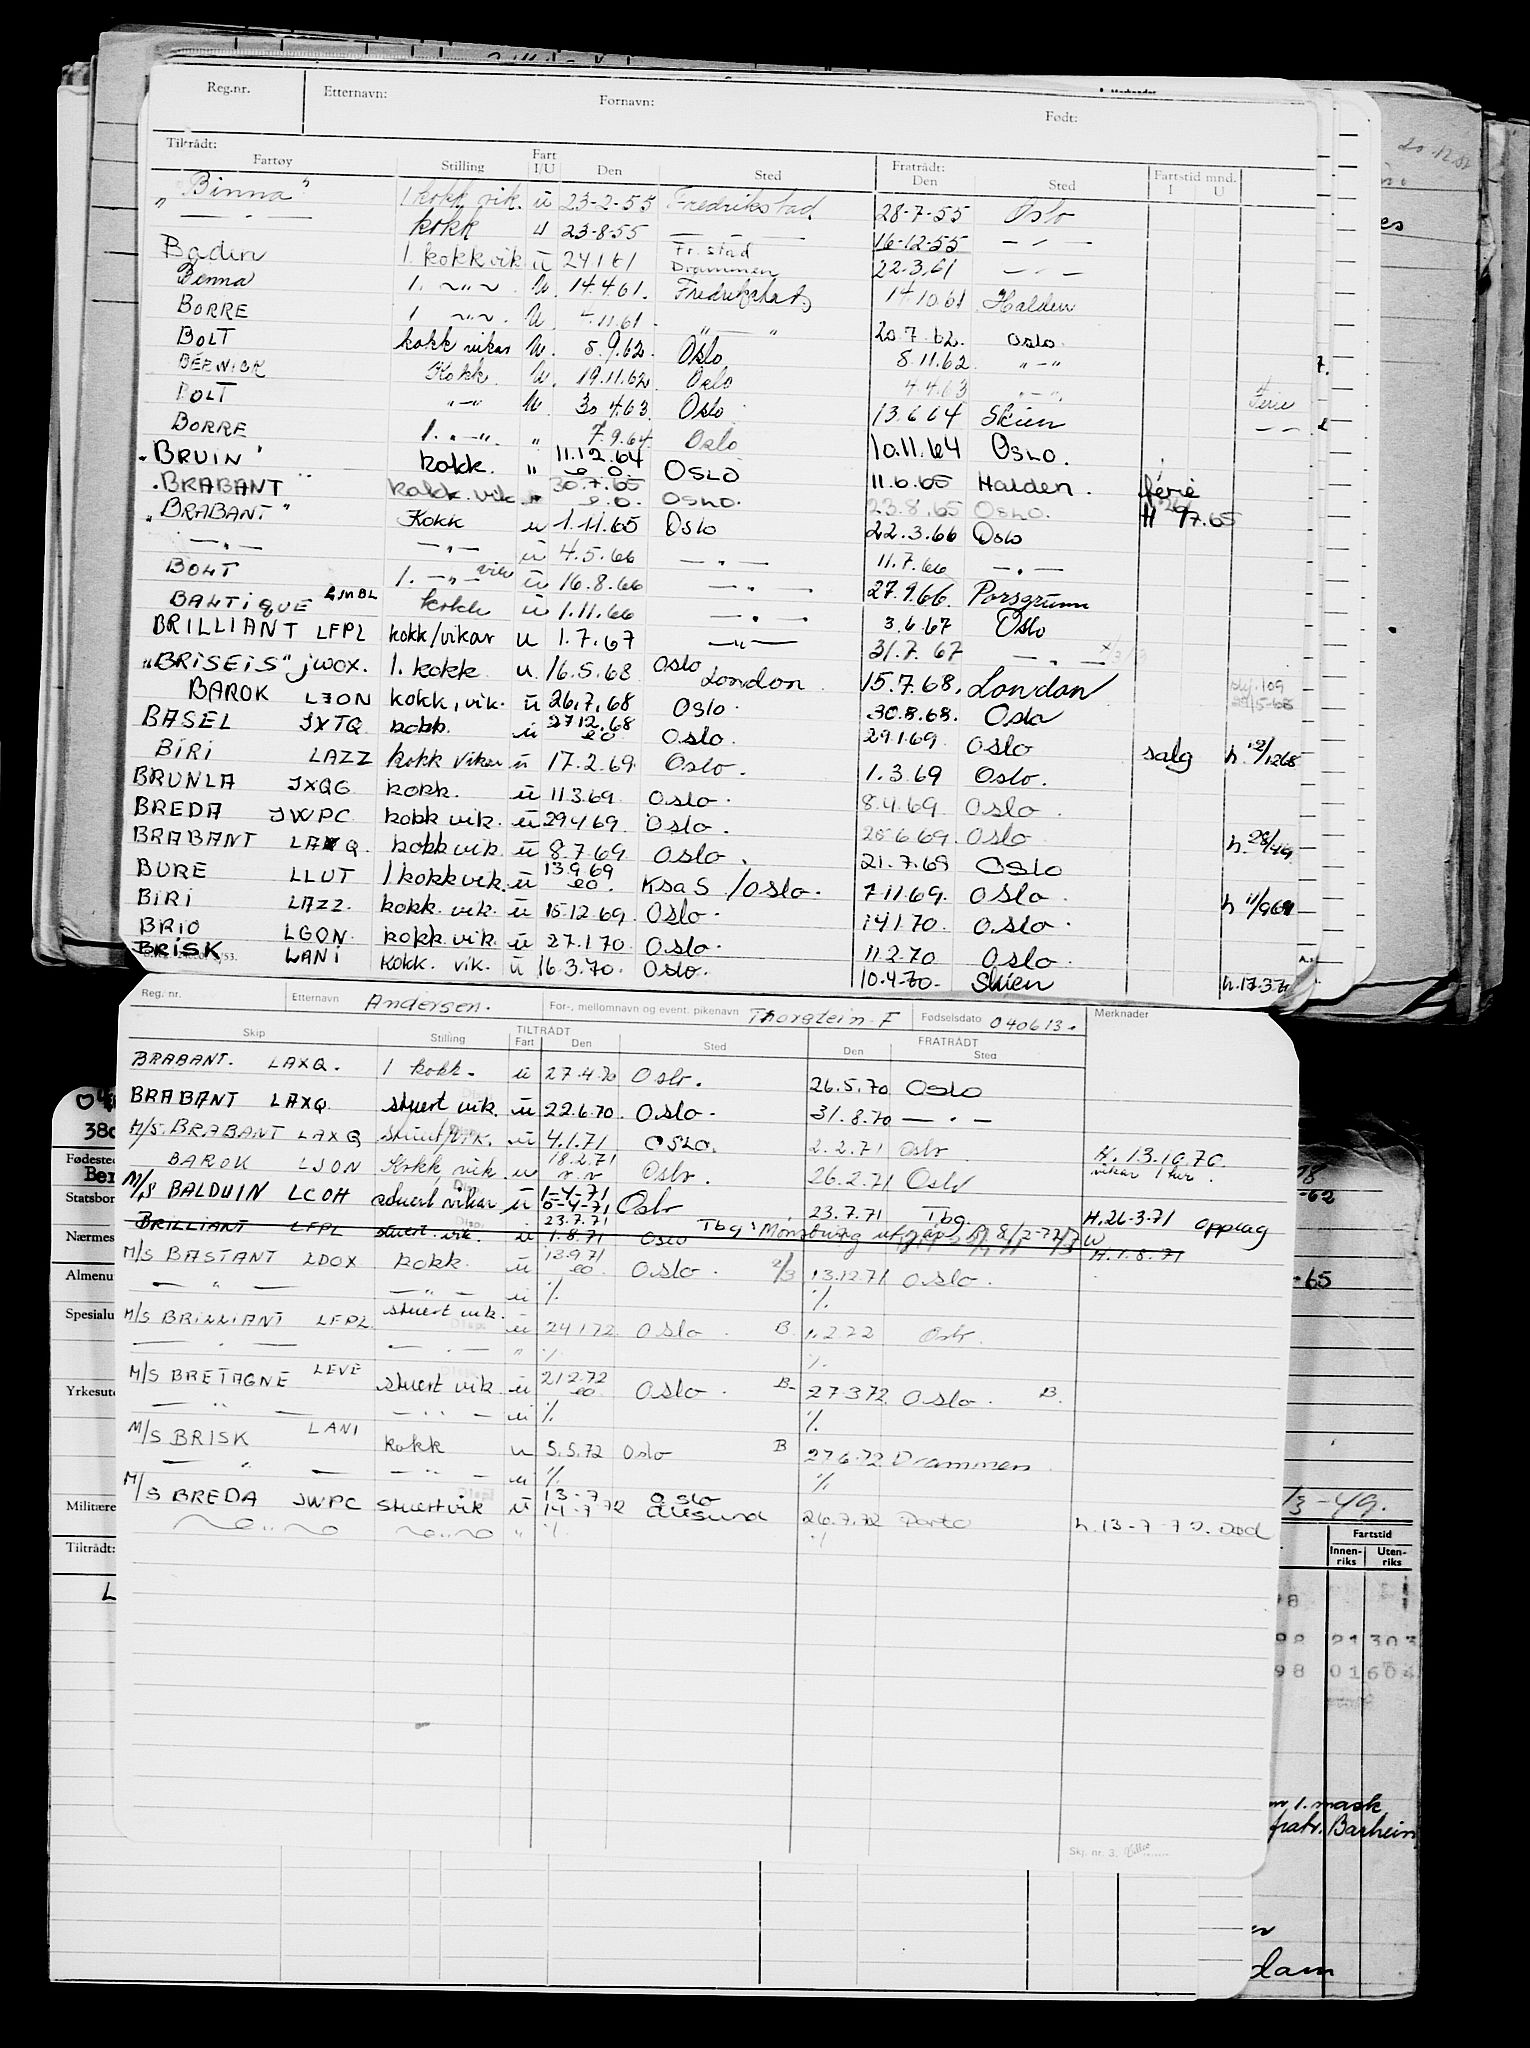 Reg.nr. Etternavn: Fornavn: Født:
Tiltrådt: Fratrådt:
Fartøy Stilling Fart I/U Den Sted Den Sted Fartstid mnd. I U
"Binna" 1 kokk vik. u 23-2-55 Fredrikstad 28-7-55 Oslo
— " — kokk u 23-8-55 — " — 16-12-55 — " —
Baden 1. kokk vik u 24.1.61 Fr.stad Drammen 22.3.61 — " —
Binna 1. ~"~ U. 14.4.61. Fredrikstad 14.10.61 Halden
BORRE 1 ~"~ U. .11.61. " — " 20.7.62. Oslo.
BOLT kokk vikar U. 5.9.62. Oslo 8.11.62 " — "
BERNICK Kokk. U. 19.11.62. Oslo 4.4.63 " — "
BOLT " — " U 30.4.63. Oslo 13.6.64 Skien Ferie
BORRE 1. " — " " 7.9.64. Oslo 10.11.64 OSLO.
"BRUIN" kokk. " 11.12.64 e.o. OSLO 11.6.65 Halden. ferie
"BRABANT" kokk vik " 30.7.65 e.o. OSLO. 23.8.65 OSLO. H 9/7.65
"BRABANT" Kokk u 1.11.65 Oslo 22.3.66 Oslo
— " — — " — u 4.5.66 — " — 11.7.66 — " —
BOLT 1. — " — vik u 16.8.66 — " — 27.9.66. Porsgrunn
BALTIQUE LMBL kokk u 1.11.66 — " — 3.6.67 Oslo
BRILLIANT LFPL kokk/vikar u 1.7.67 — " — 31.7.67 — " —
"BRISEIS" JWOX. 1. kokk u 16.5.68 Oslo London 15.7.68. London
BAROK LJON kokk, vik. u 26.7.68 Oslo. 30.8.68. Oslo
BASEL JXTQ kokk. u 27.12.68 eo Oslo. 29.1.69. Oslo
BIRI LAZZ kokk vikar u 17.2.69. Oslo. 1.3.69 Oslo. salg h. 12/1268
BRUNLA JXQG kokk. u 11.3.69. Oslo. 8.4.69 Oslo.
BREDA JWPC. kokk vik. u 29.4.69. Oslo. 20.6.69. Oslo
BRABANT LAXQ. kokk vik. u 8.7.69 Oslo. 21.7.69 Oslo
BURE LLUT 1 kokk vik. u 13.9.69 eo. Ksa S /Oslo. 7.11.69. Oslo.
BIRI LAZZ. kokk. vik. u 15.12.69. Oslo. 14.1.70. Oslo.
BRIO LGON. kokk vik. u 27.1.70. Oslo. 11.2.70 Oslo.
BRISK LANI kokk. vik. u 16.3.70. Oslo. 10.4.70. Skien
Reg. nr. Etternavn Andersen. For-, mellomnavn og event. pikenavn Thorstein F Fødselsdato 040613. Merknader
TILTRÅDT FRATRÅDT
Skip Stilling Fart Den Sted Den Sted
BRABANT. LAXQ. 1 kokk. u 27.4.70 Oslo. 26.5.70 Oslo
BRABANT LAXQ stuert vik. u 22.6.70. Oslo. 31.8.70 — " —
M/S. BRABANT LAXQ stuert/vik. u 4.1.71 OSLO. 2.2.71 Oslo H. 13.10.70.
BAROK LJON Kokk vik u 18.2.71 Oslo. 26.2.71 Oslo vikar 1 tur.
M/S BALDUIN LCOH stuert vikar u 1-4-71 5-4-71 Oslo 23.7.71 Tbg. H. 26-3.71 opplag
BRILLIANT LFPL stuert. vik. u 23.7.71 1.8.71 Oslo Tbg: H. 1.8.71
M/S BASTANT LDOX kokk. u 13.9.71 eo. Oslo. 2/3 13.12.71 Oslo.
— " — — " — u %. %.
M/S BRILLIANT LFPL. stuert vik. u 24.1.72 Oslo. B. 1.2.72 Oslo.
— " — — " — " %. %.
M/S BRETAGNE LEVE stuert vik. u 21.2.72 eo. Oslo. B- 27.3.72. Oslo. B.
— " — — " — u %. %.
M/S BRISK LANI kokk u 5.5.72 Oslo B 27.6.72 Drammen
— " — — " — u %. %.
M/S BREDA JWPC stuert vik u 13-7 14-7 72 Oslo Ålesund 26.7.72 Porto h. 13-7-72. Død
~ " ~ ~ " ~ " %. %
Skj. nr. 3.
380
Fødested
Ber
Statsbor
Nærmes
Almenu
Spesialu
Yrkesutd
Militære
Tiltrådt:
L
-62
-65
/3-49.
Fartstid
Innenriks Utenriks
98
98 21303
98 01604
1. mask
fratr. Barhein
dam